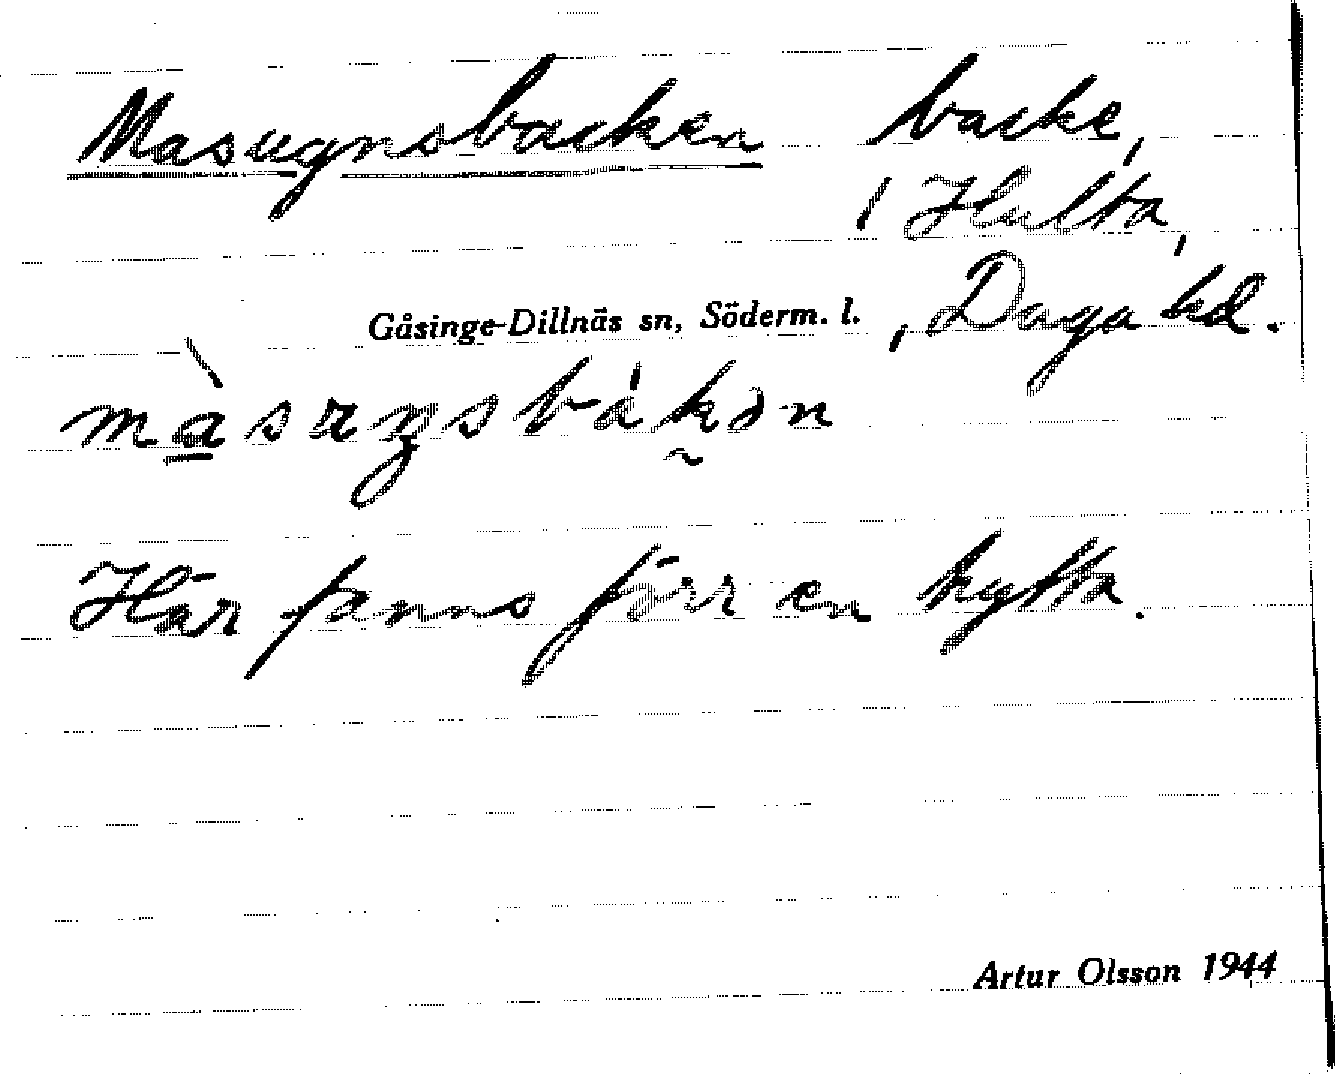 Masugnsbacken backe,
i Hulta,
Gåsinge-Dillnäs sn, Söderm. l. , Daga hd.
Här fanns förr en hytta.
Artur Olsson 1944